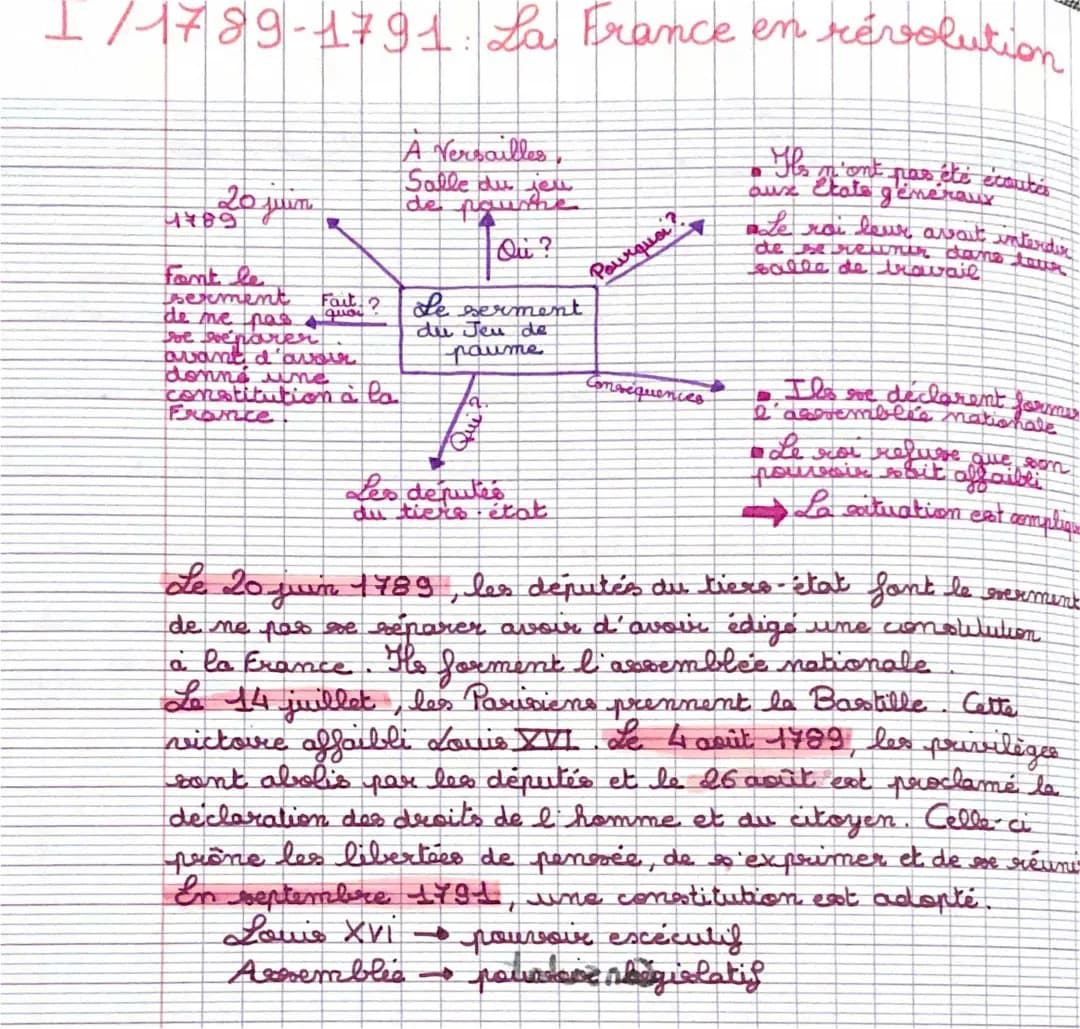 I / 1789-1791 : La France en révolution
À Versailles,
Salle du jeu
de paume
20 juin
1789
Où ?
Pourquoi ?
▪ Ils n'ont pas été écoutés
aux États généraux
▪ Le roi leur avait interdir
de se réunir dans leur
salle de travail
Font le
serment
de ne pas
se séparer
avant d'avoir
donné une
constitution à la
France.
Fait
quoi ?
Le serment
du Jeu de
paume
Conséquences
▪ Ils se déclarent former
l'assemblée nationale
▪ Le roi refuse que son
pouvoir soit affaibli
➡ La situation est complique
Qui ?
Les députés
du tiers-état
Le 20 juin 1789, les députés du tiers-état font le serment
de ne pas se séparer avoir d'avoir édigé une constitution
à la France. Ils forment l'assemblée nationale.
Le 14 juillet, les Parisiens prennent la Bastille. Cette
victoire affaibli Louis XVI. Le 4 août 1789, les privilèges
sont abolis par les députés et le 26 août est proclamé la
déclaration des droits de l'homme et du citoyen. Celle-ci
prône les libertées de pensée, de s'exprimer et de se réuni
En septembre 1791, une constitution est adopté.
Louis XVI → pouvoir escécutif
Assemblée → législatif